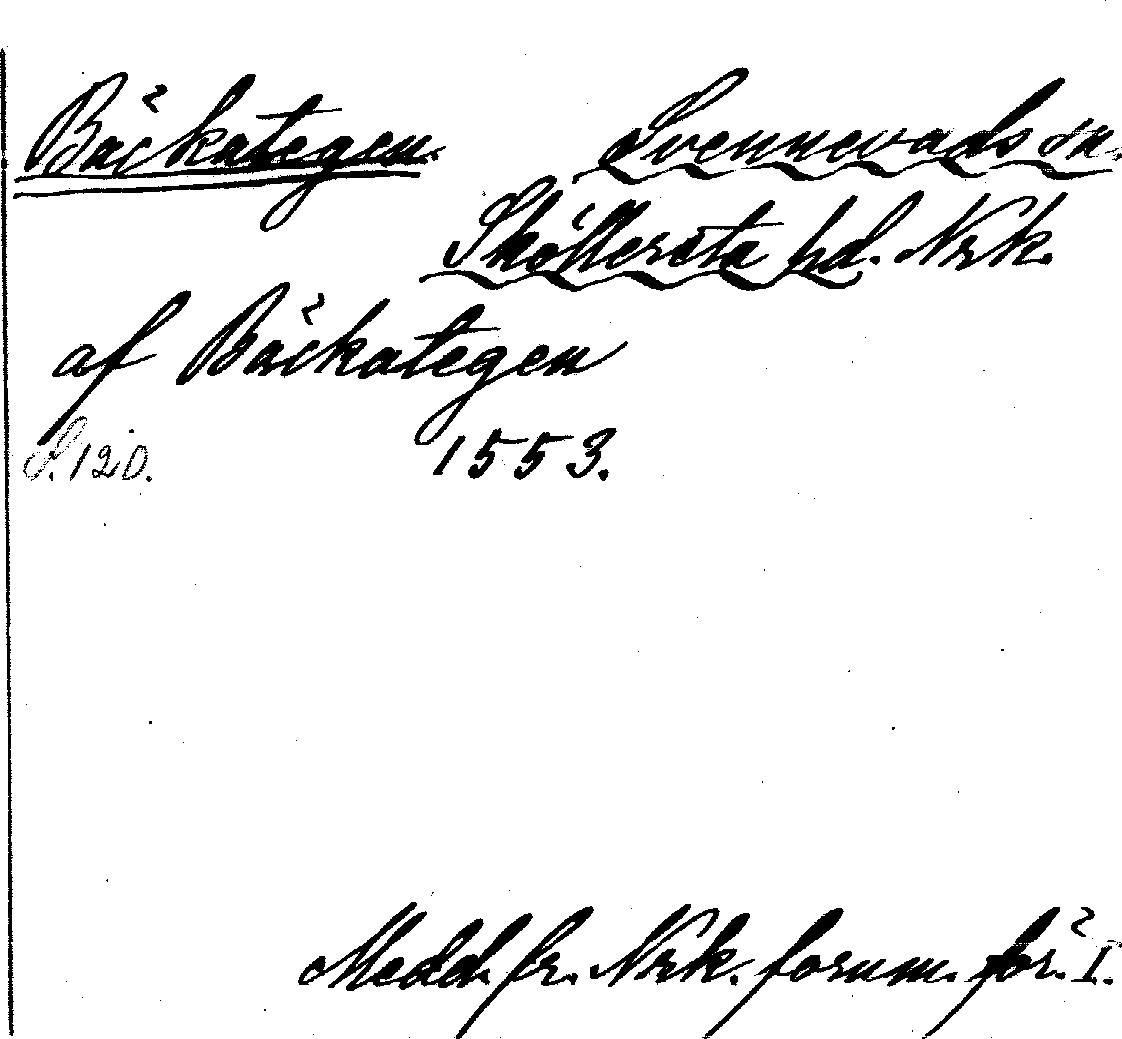 Bäckategen. Svennevads sn.
Sköllersta hd. Nrk.
af Bäckategen
S. 120. 1553.
Medd. fr. Nrk. fornm. för. I.